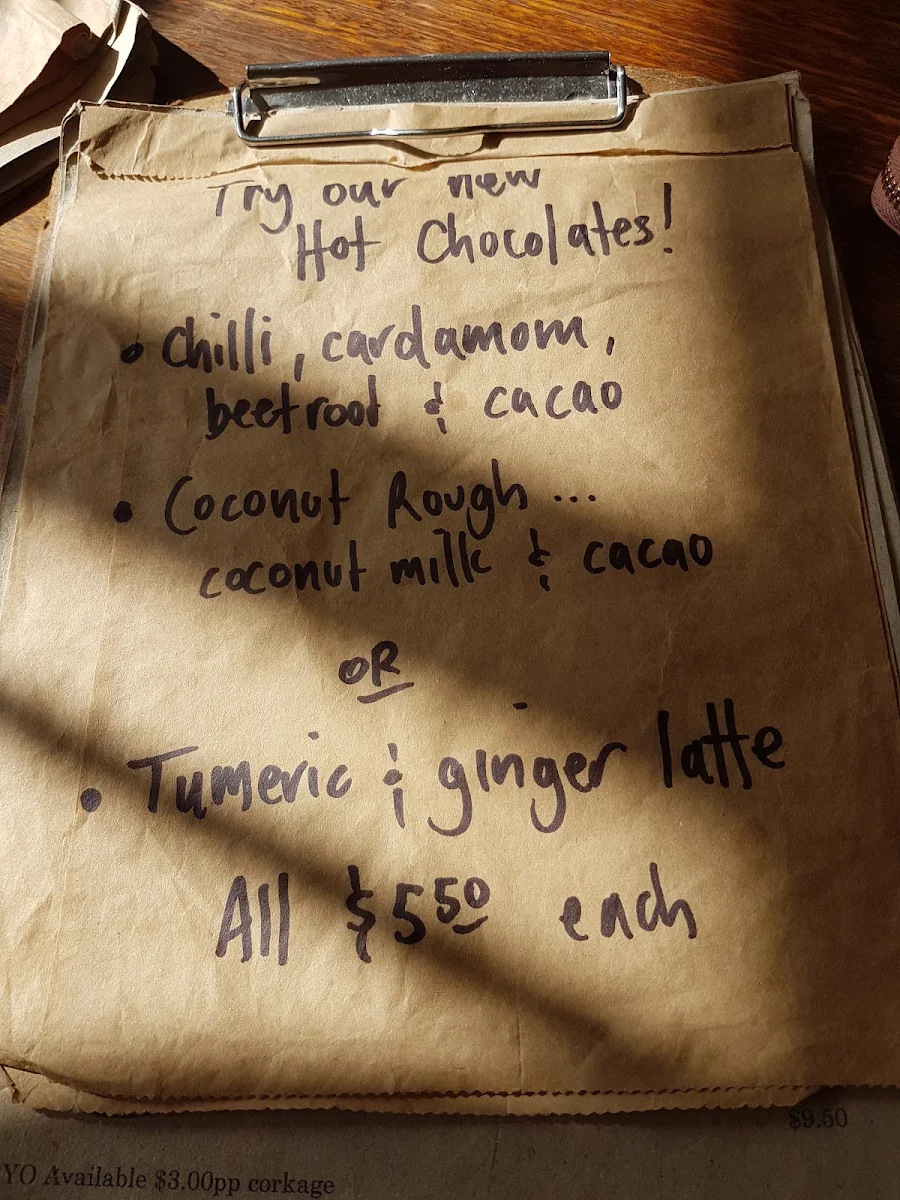 Try our new
Hot Chocolates!
• Chilli, cardamom,
beetroot & cacao
• Coconut Rough...
coconut milk & cacao
OR
• Tumeric & ginger latte
All $5.50 each
$9.50
YO Available $3.00pp corkage